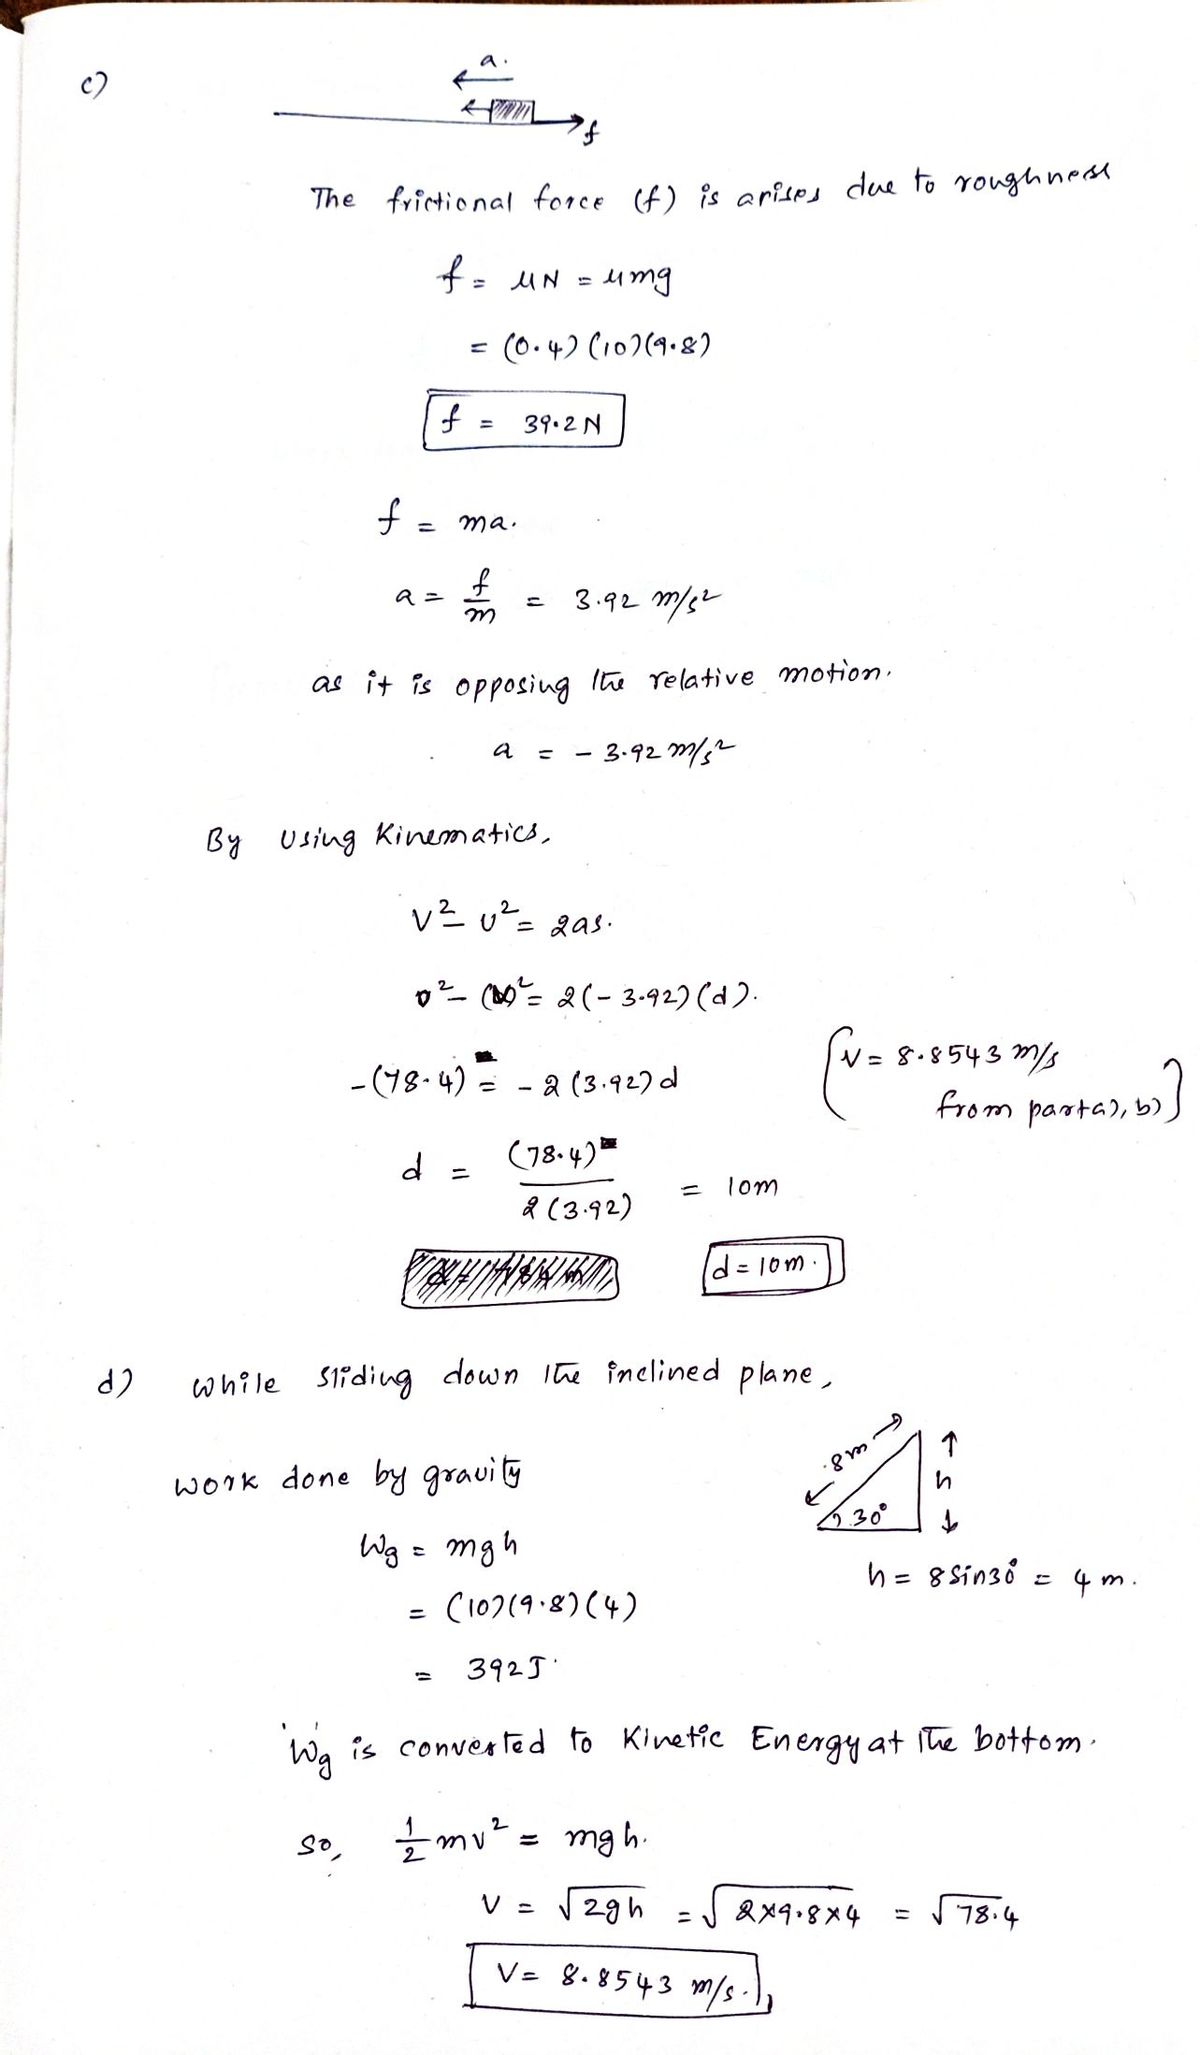 c)
a.
f
The frictional force (f) is arises due to roughness
f = μN = μmg
= (0.4) (10) (9.8)
f = 39.2 N
f = ma.
a = f/m = 3.92 m/s²
as it is opposing the relative motion.
a = - 3.92 m/s²
By using Kinematics,
V² - u² = 2as.
0² - ( )² = 2(- 3.92) (d).
-(78.4) = - 2 (3.92) d
(V = 8.8543 m/s
from part a), b))
d = (78.4) / 2 (3.92) = 10m
d = 10m.
d) while sliding down the inclined plane,
8m
h
30°
work done by gravity
Wg = mgh
h = 8 Sin30° = 4 m.
= (10) (9.8) (4)
= 392 J.
Wg is converted to Kinetic Energy at the bottom.
So, 1/2 mv² = mgh.
V = √2gh = √2×9.8×4 = √78.4
V = 8.8543 m/s.